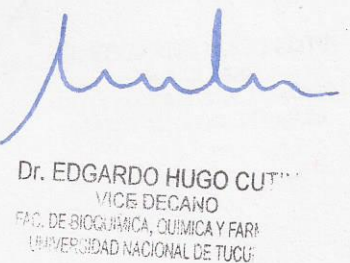 Dr. EDGARDO HUGO CUT
VICE DECANO
FAC. DE BIOQUIMICA, QUIMICA Y FARM
UNIVERSIDAD NACIONAL DE TUCU